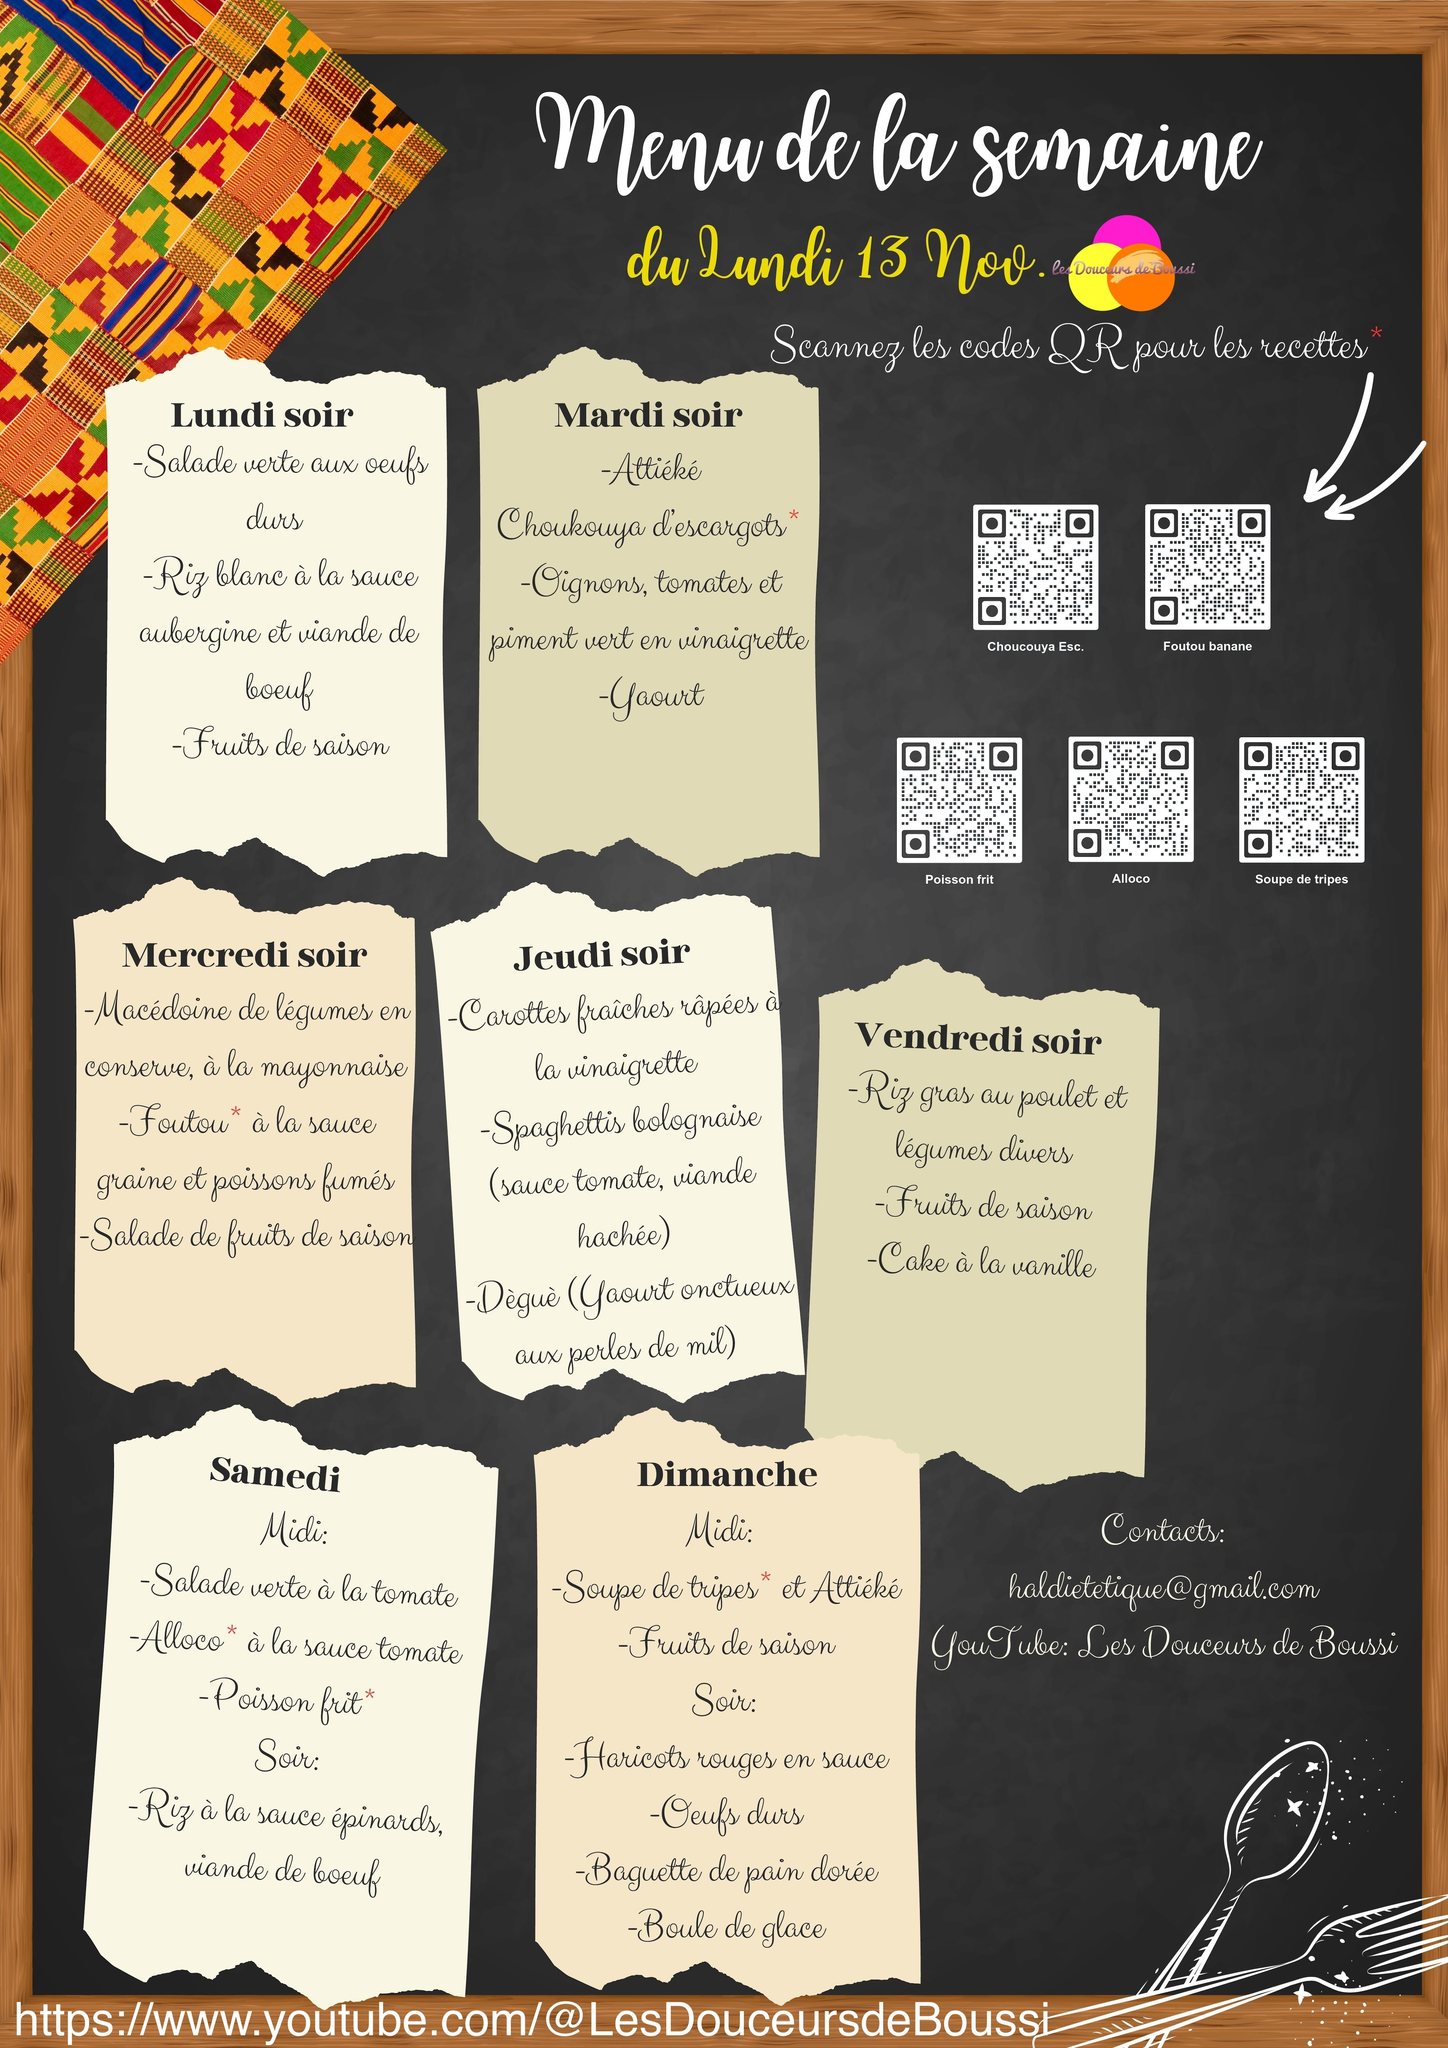 Menu de la semaine
du Lundi 13 Nov.
Les Douceurs de Boussi
Scannez les codes QR pour les recettes*
Lundi soir
-Salade verte aux oeufs
durs
-Riz blanc à la sauce
aubergine et viande de
boeuf
-Fruits de saison
Mardi soir
-Attiéké
Choukouya d'escargots*
-Oignons, tomates et
piment vert en vinaigrette
-Yaourt
Choucouya Esc.
Foutou banane
Poisson frit
Alloco
Soupe de tripes
Mercredi soir
-Macédoine de légumes en
conserve, à la mayonnaise
-Foutou* à la sauce
graine et poissons fumés
-Salade de fruits de saison
Jeudi soir
-Carottes fraîches râpées à
la vinaigrette
-Spaghettis bolognaise
(sauce tomate, viande
hachée)
-Dèguè (Yaourt onctueux
aux perles de mil)
Vendredi soir
-Riz gras au poulet et
légumes divers
-Fruits de saison
-Cake à la vanille
Samedi
Midi:
-Salade verte à la tomate
-Alloco* à la sauce tomate
-Poisson frit*
Soir:
-Riz à la sauce épinards,
viande de boeuf
Dimanche
Midi:
-Soupe de tripes* et Attiéké
-Fruits de saison
Soir:
-Haricots rouges en sauce
-Oeufs durs
-Baguette de pain dorée
-Boule de glace
Contacts:
haldietetique@gmail.com
YouTube: Les Douceurs de Boussi
https://www.youtube.com/@LesDouceursdeBoussi